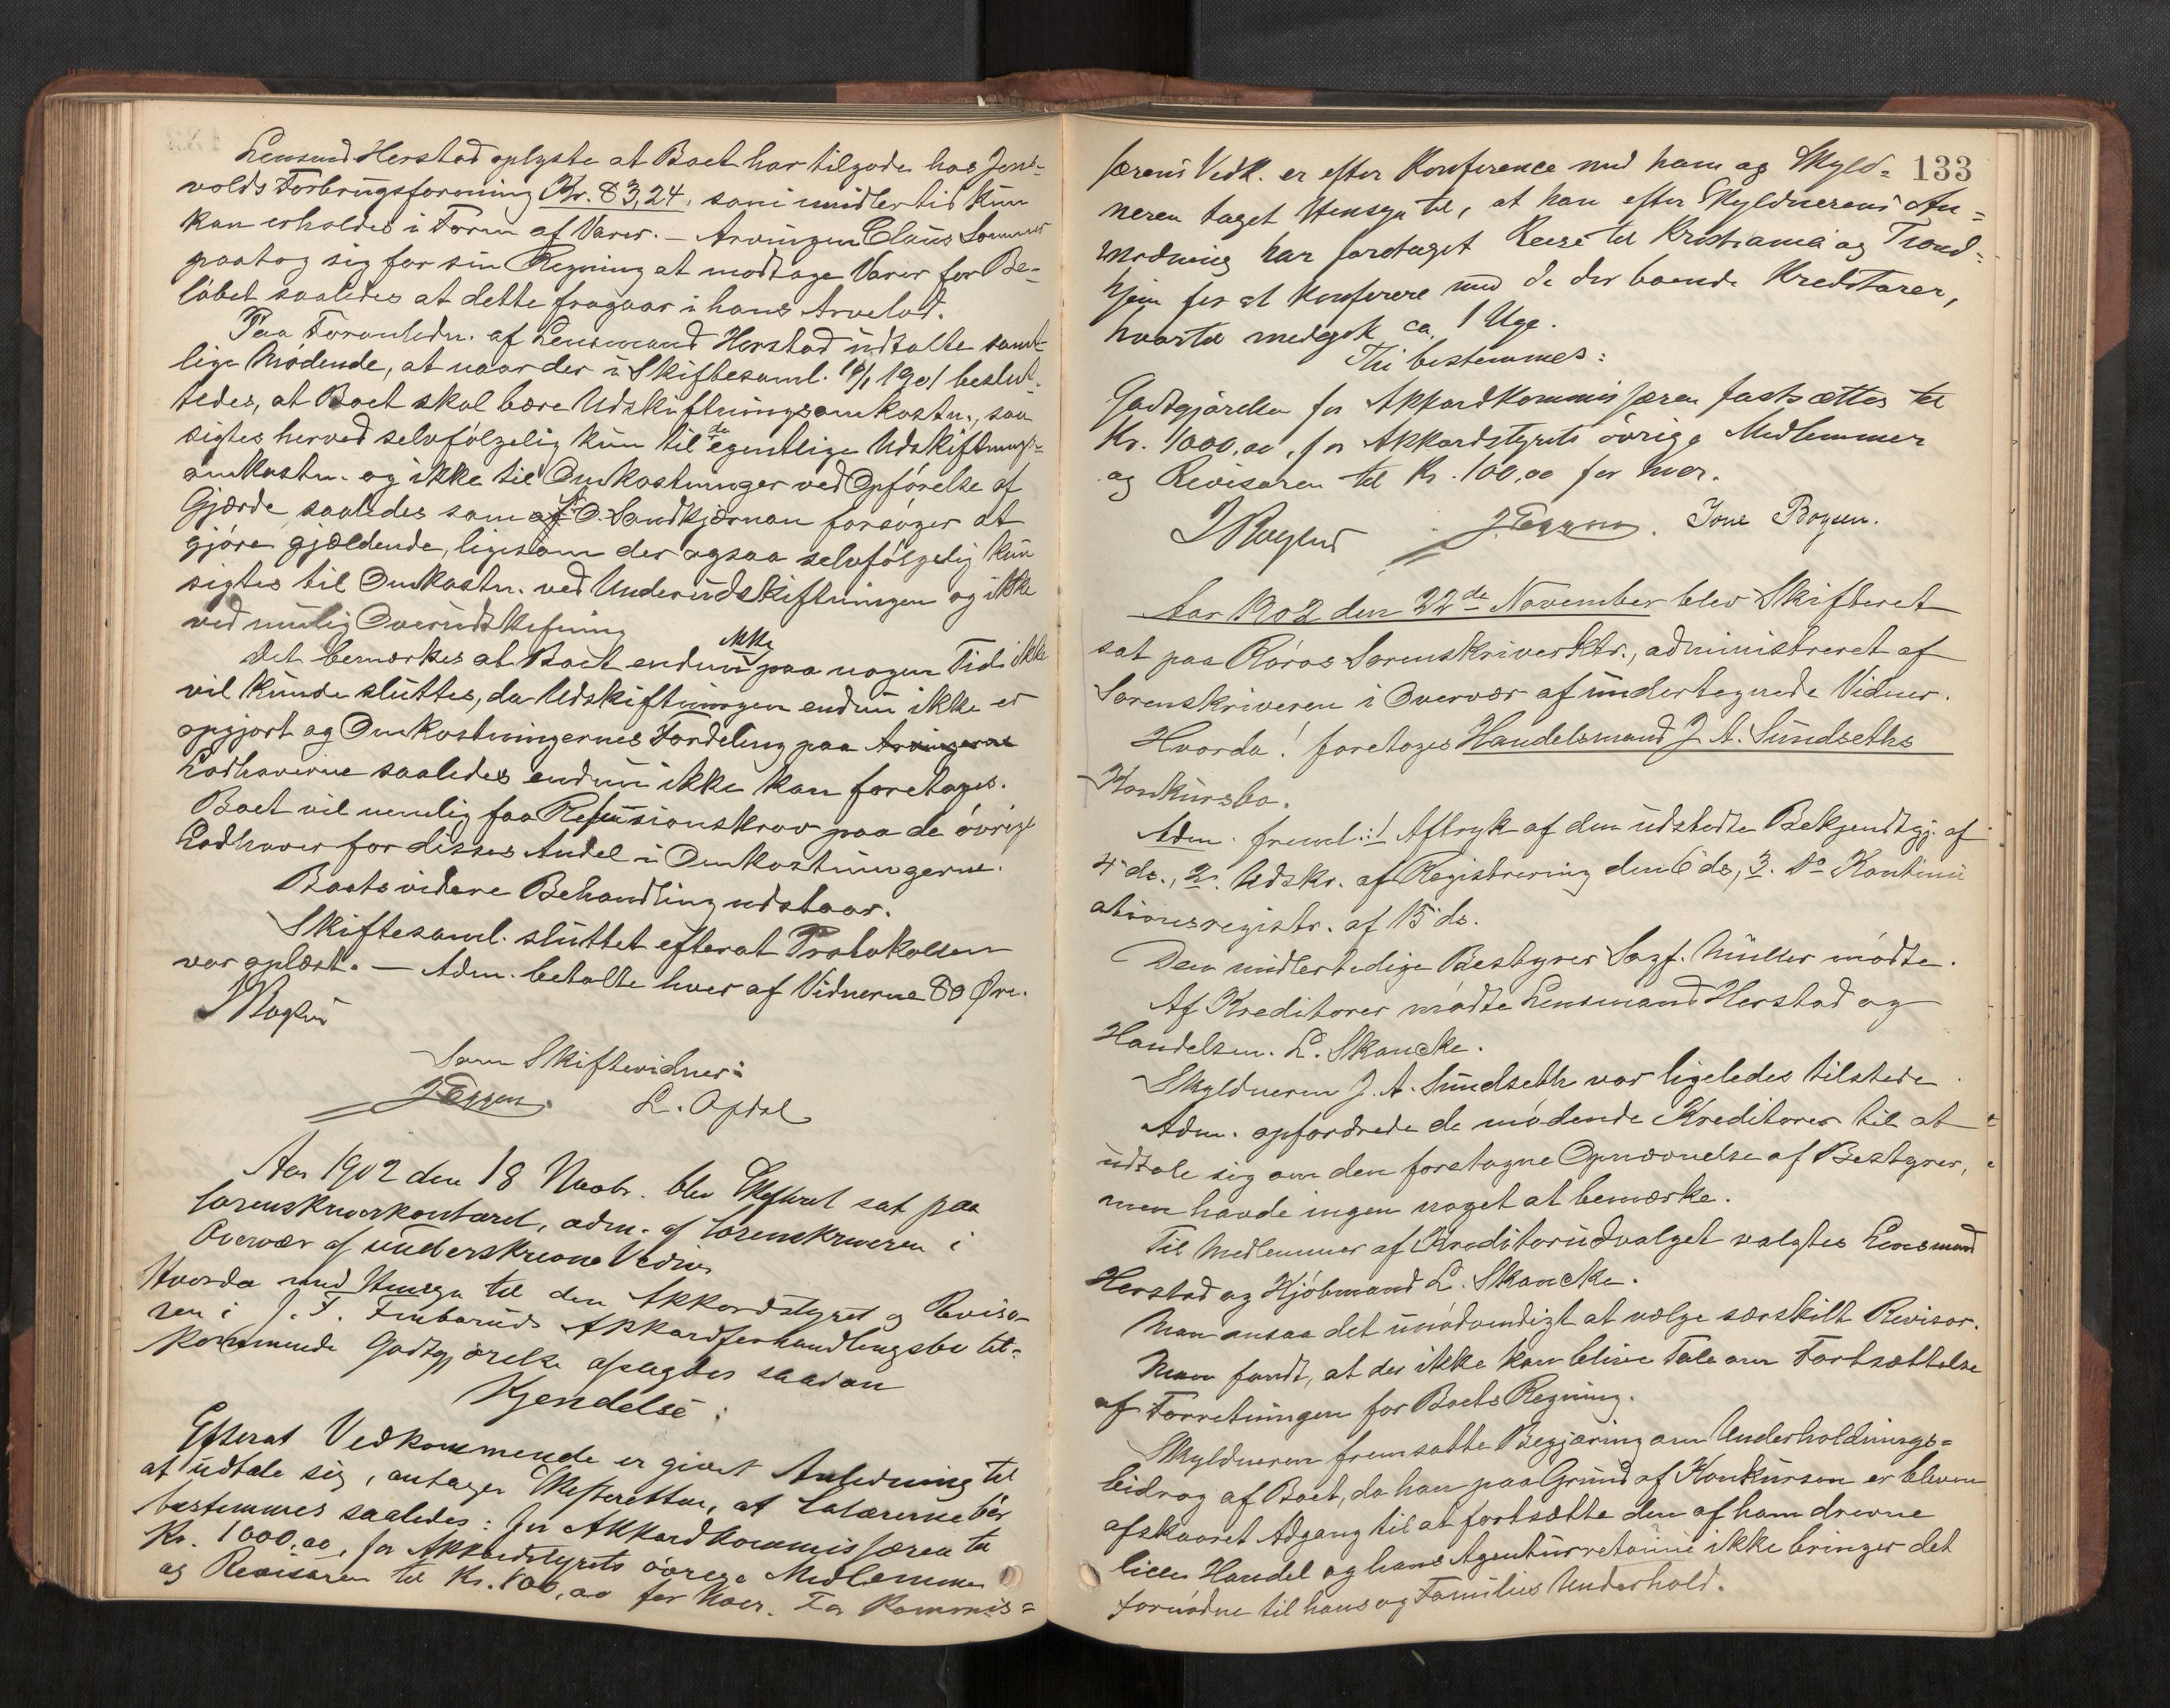 Lensmd. Herstad oplyste at Boet har tilgode hos Jens-
volds Forbrugsforening Kr. 83,24, som imidlertid kun
kan erholdes i Form af Varer. — Arvingen Claus Sommer
paatog sig for sin Regning at modtage Varer for Be-
løbet saaledes at dette fragaar i hans Arvelod.
Paa Foranledn. af Lensmand Herstad udtalte samt-
lige Mødende, at naar der i Skiftesaml. 1901 beslut-
tedes, at Boet skal bære Udskiftningsomkostn., saa
sigtes herved selvfølgelig kun til de egentlige Udskiftnings-
omkostn. og ikke til Omkostninger ved Opførelse af
Gjærde saaledes som O. Sandkjærnan forsøger at
gjøre gjældende, ligesom der ogsaa selvfølgelig kun
sigtes til Omkostn. ved Underudskiftningen og ikke
ved mulig Overudskiftning
Det bemærkes at Boet endnu ikke paa nogen Tid ikke
vil kunde sluttes, da Udskiftningen endnu ikke er
opgjort og Omkostningernes Fordeling paa Arvingerne
Lodhaverne saaledes endnu ikke kan foretages.
Boet vil nemlig faa Refusionskrav paa de øvrige
Lodhaver for disses Andel i Omkostningerne.
Boets videre Behandling udstaar.
Skiftesaml. sluttet efterat Protokollen
var oplæst. — Adm. betalte hver af Vidnerne 80 Øre.
Som Skiftevidner:
JEggen. L. Opdal
Aar 1902 den 18 Novbr. blev Skifteret sat paa
Sorenskriverkontoret, adm. af Sorenskriveren i
Overvær af underskrevne Vidner
Hvorda med Hensyn til den Akkordstyret og Reviso-
ren i J. T. Finbaruds Akkordforhandlingsbo til-
kommende Godtgjørelse afsagdes saadan
Kjendelse:
Efterat Vedkommende er givet Anledning til
at udtale sig, antager Skifteretten, at Salærerne bør
bestemmes saaledes: for Akkordkommissæren til
Kr. 1000,00, for Akkordstyrets øvrige Medlemmer
og Revisoren til Kr. 100,00 for hver. For Kommis=
133
særens Vedk. er efter Konference med ham og Skyld-
neren taget Hensyn til, at han efter Skyldnerens An=
modning har foretaget Reise til Kristiania og Trond-
hjem for at konferere med de der boende Kreditorer,
hvortil medgik ca. 1 Uge.
Thi bestemmes:
Godtgjørelsen for Akkordkommissæren fastsættes til
Kr. 1000,00, for Akkordstyrets øvrige Medlemmer
og Revisoren til Kr. 100,00 for hver.
JEggen. Jone Bozeen.
Aar 1902 den 22de November blev Skifteret
sat paa Røros Sorenskriverktr., administreret af
Sorenskriveren i Overvær af undertegnede Vidner.
Hvorda! foretoges Handelsmand J. A. Sundseths
Konkursbo.
Adm. freml.: 1 Aftryk af den udstedte Bekjendtgj. af
4' ds., 2. Udskr. af Registrering den 6' ds, 3. Do Kontinu
ationsregistr. af 15' ds.
Den midlertidige Bestyrer Sagf. Müller mødte.
Af Kreditorer mødte Lensmand Herstad og
Handelsm. L. Skancke.
Skyldneren J. A. Sundseth var ligeledes tilstede.
Adm. opfordrede de mødende Kreditorer til at
udtale sig om den foretagne Opnævnelse af Bestyrer,
men havde ingen noget at bemærke.
Til Medlemmer af Kreditorudvalget valgtes Lensmand
Herstad og Kjøbmand L. Skancke.
Man ansaa det unødvendigt at vælge særskilt Revisor.
Man fandt, at der ikke kan blive Tale om Fortsættelse
af Forretningen for Boets Regning.
Skyldneren fremsatte Begjæring om Underholdnings=
bidrag af Boet, da han paa Grund af Konkursen er bleven
afskaaret Adgang til at fortsætte den af ham drevne
lille Handel og hans Agenturretourer ikke bringer det
fornødne til hans og Families Underhold.